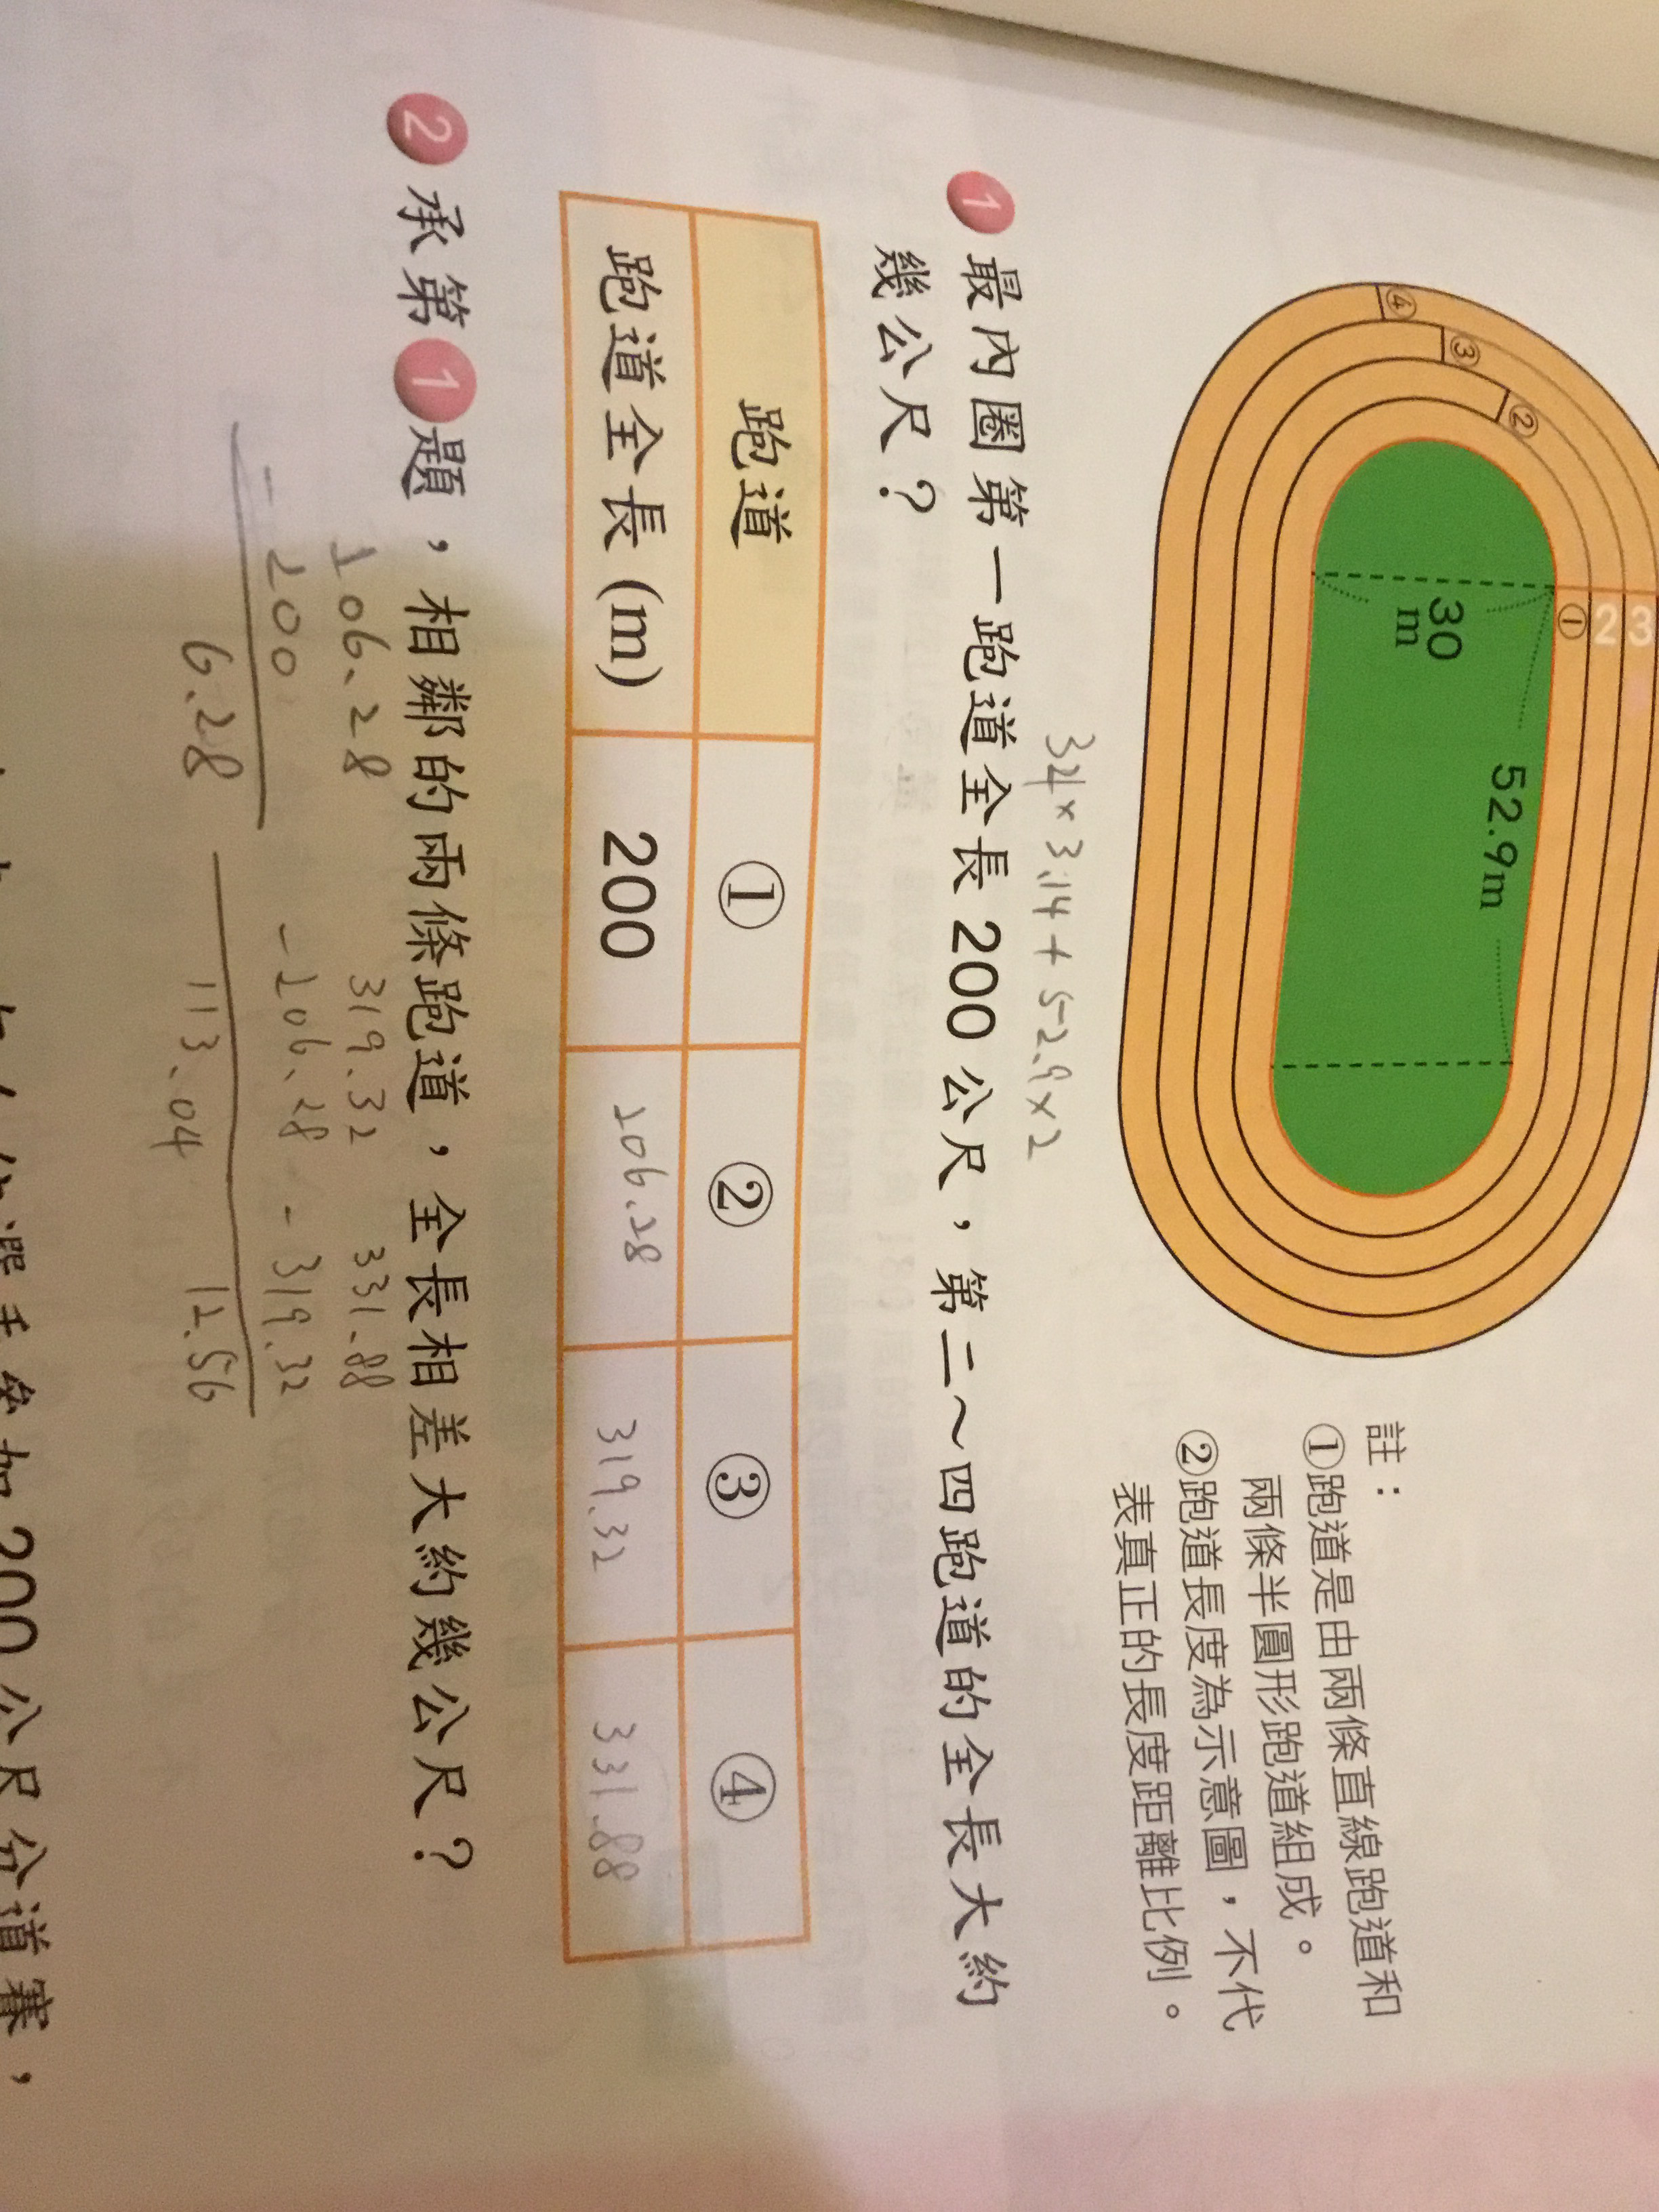 ④
③
②
① 2 3
30
m
52.9m
註：
①跑道是由兩條直線跑道和
兩條半圓形跑道組成。
②跑道長度為示意圖，不代
表真正的長度距離比例。
34×3.14+52.9×2
1 最內圈第一跑道全長 200 公尺，第二～四跑道的全長大約
幾公尺？
跑道 ① ② ③ ④
跑道全長 (m) 200 206.28 319.32 331.88
2 承第 1 題，相鄰的兩條跑道，全長相差大約幾公尺？
206.28 319.32 331.88
-200 -206.28 -319.32
6.28 113.04 12.56
200 公尺分道賽，